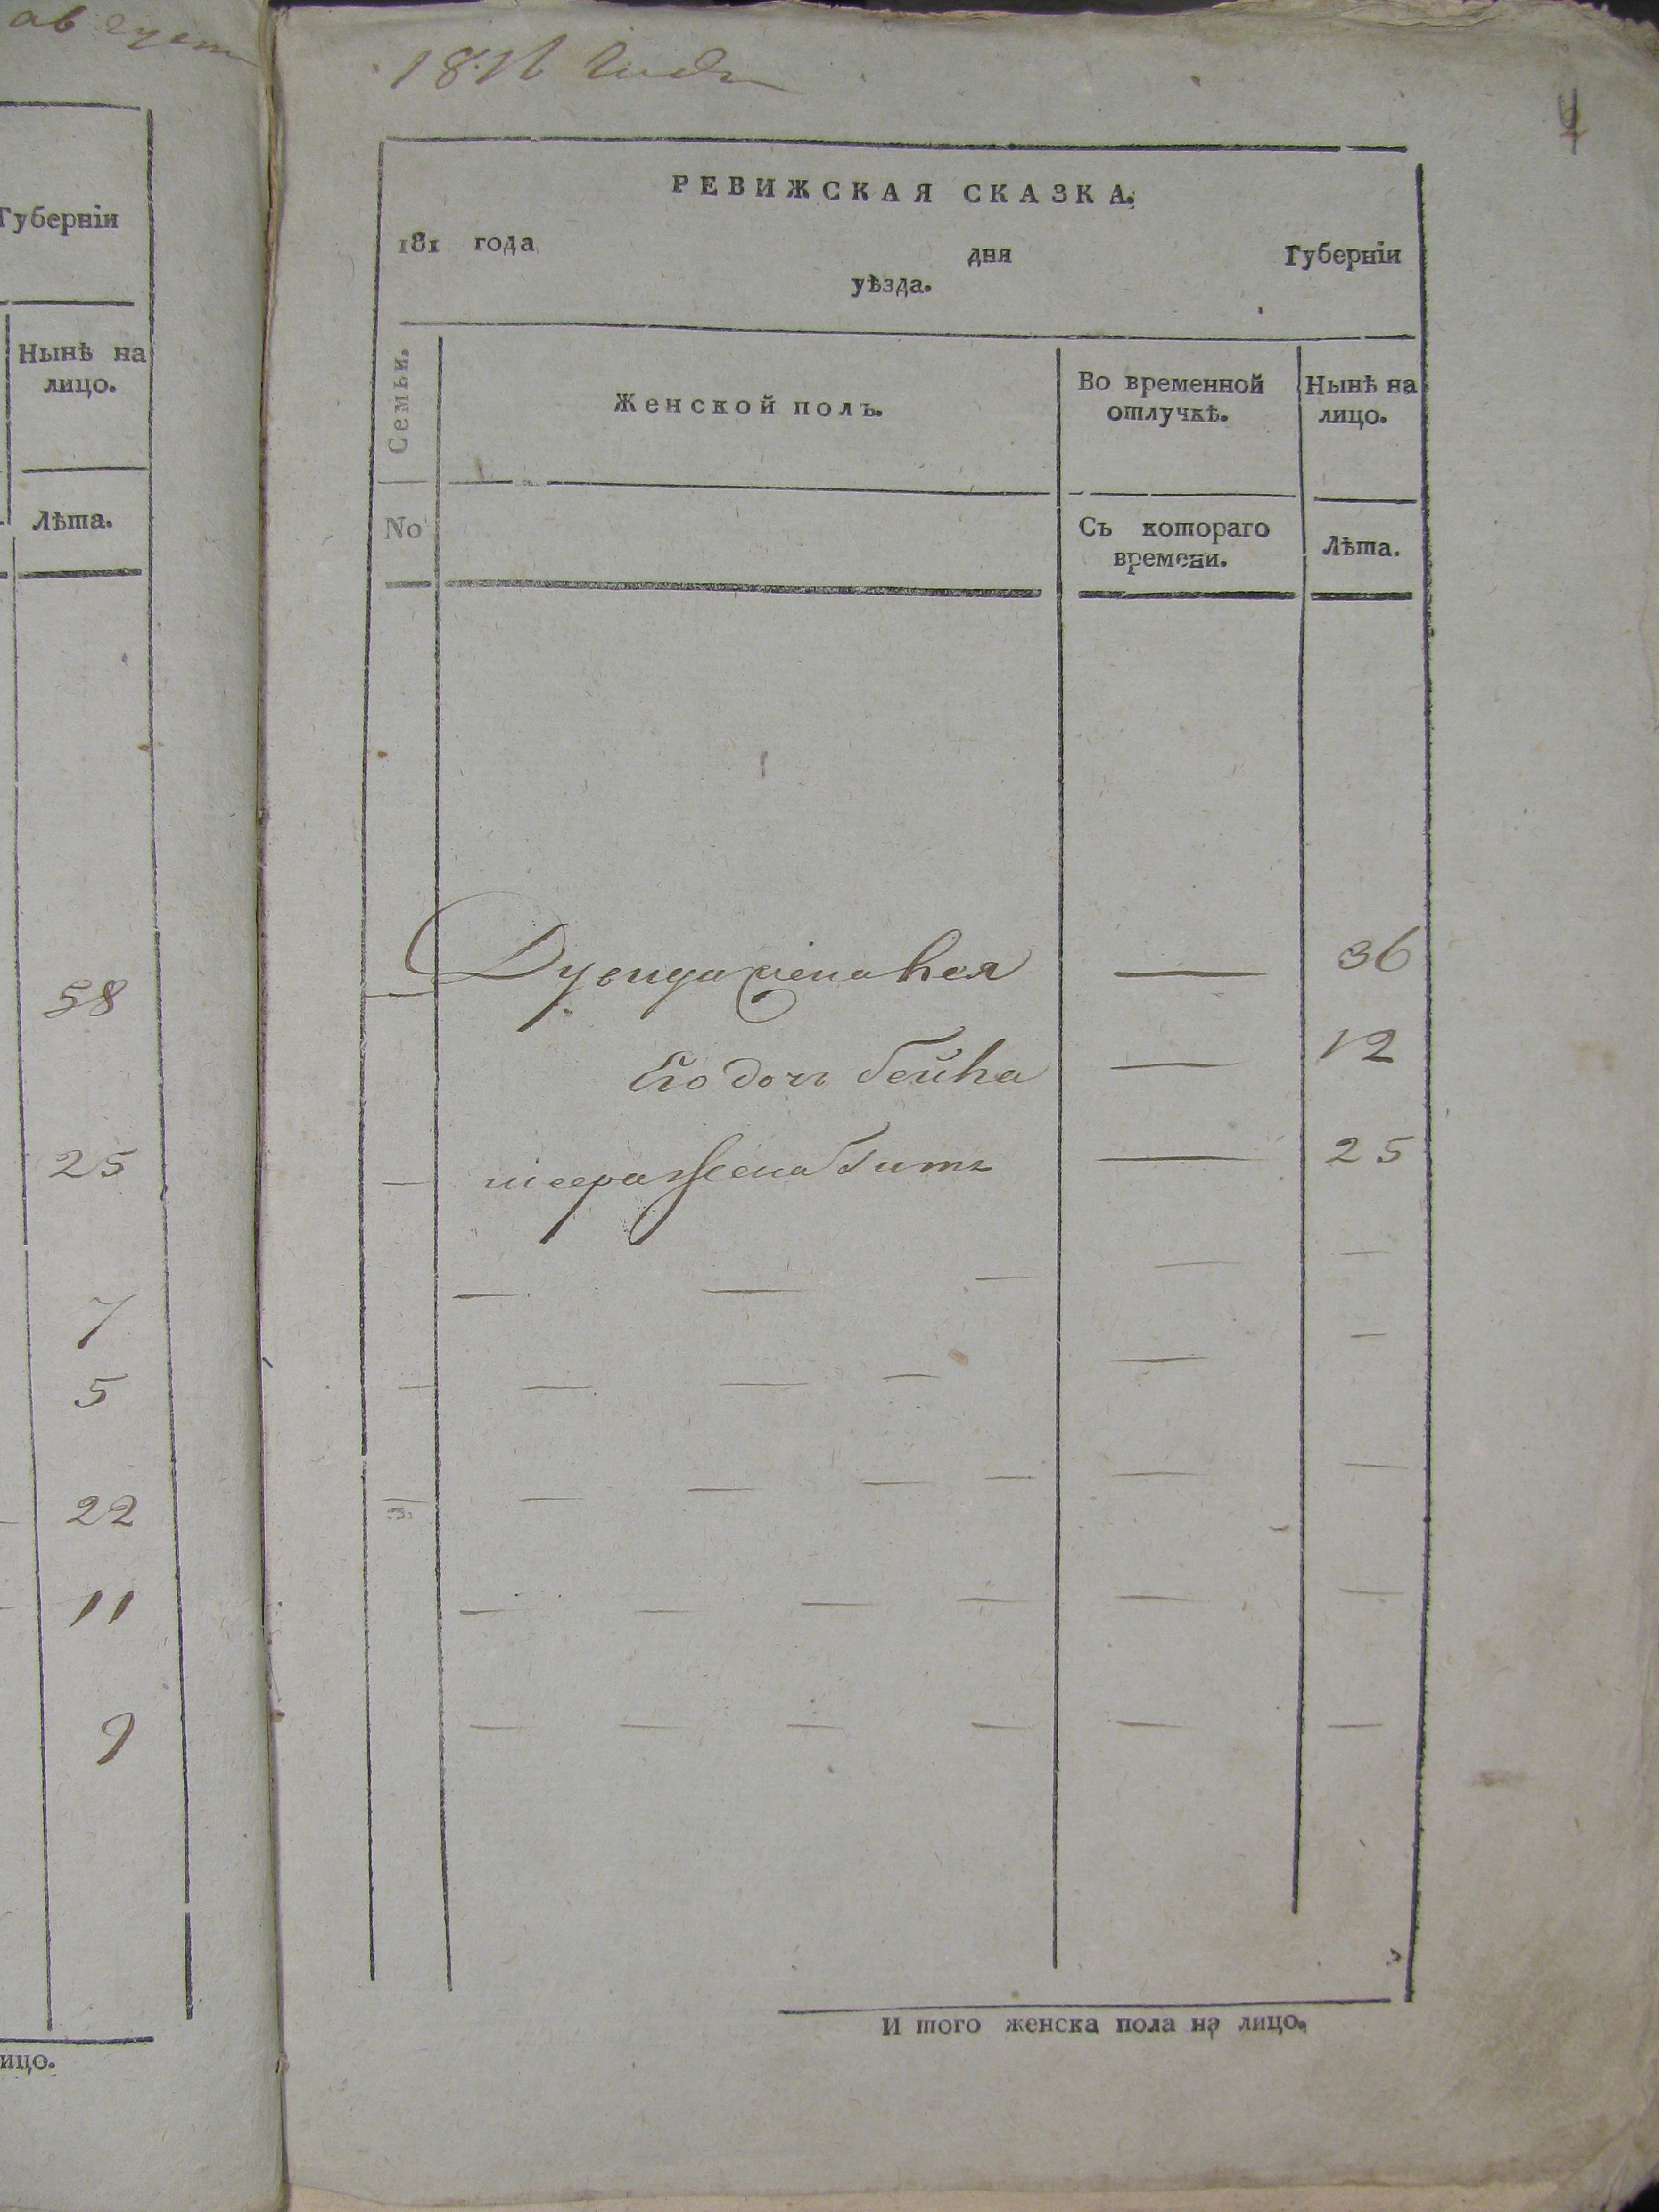 август
Губернїи
Нынѣ на
лицо.
Лѣта.
58
25
7
5
22
11
9
ицо.
1816 года
РЕВИЖСКАЯ СКАЗКА.
181 года дня Губернїи
уѣзда.
Семьи. Женской полъ. Во временной Нынѣ на
отлучкѣ. лицо.
No Съ котораго Лѣта.
времени.
жена 36
Его дочь Бейна 12
жена Гитъ 25
И того женска пола на лицо.